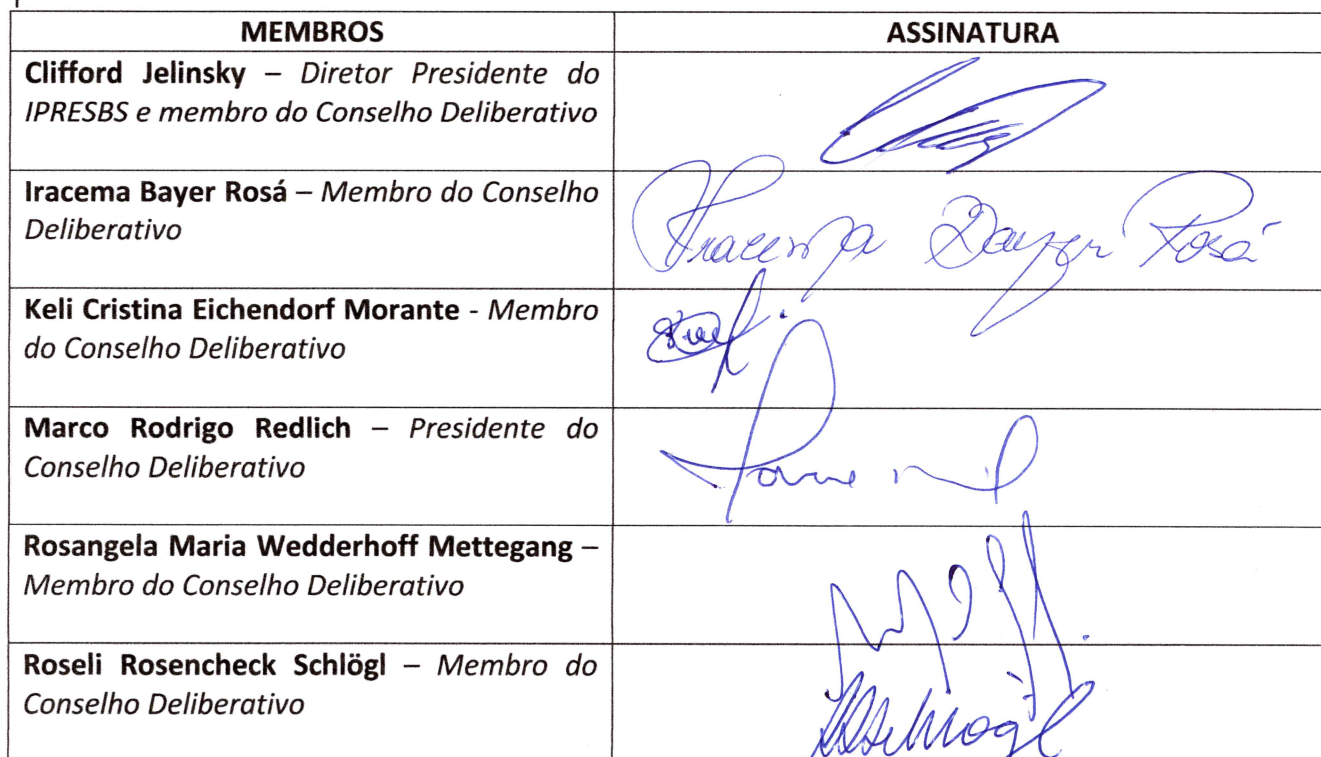 MEMBROS
ASSINATURA
Clifford Jelinsky – Diretor Presidente do
IPRESBS e membro do Conselho Deliberativo
Iracema Bayer Rosá – Membro do Conselho
Deliberativo
Iracema Bayer Rosá
Keli Cristina Eichendorf Morante - Membro
do Conselho Deliberativo
Marco Rodrigo Redlich – Presidente do
Conselho Deliberativo
Rosangela Maria Wedderhoff Mettegang –
Membro do Conselho Deliberativo
Roseli Rosencheck Schlögl – Membro do
Conselho Deliberativo